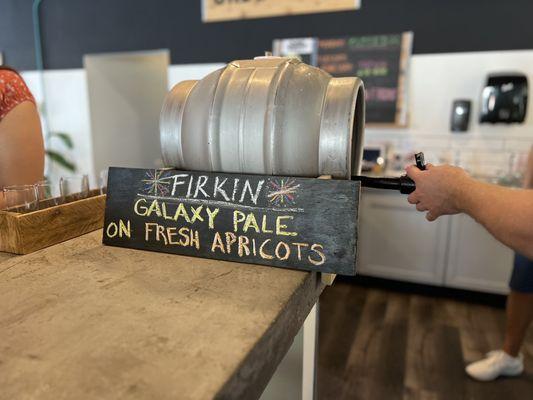 FIRKIN
GALAXY PALE
ON FRESH APRICOTS